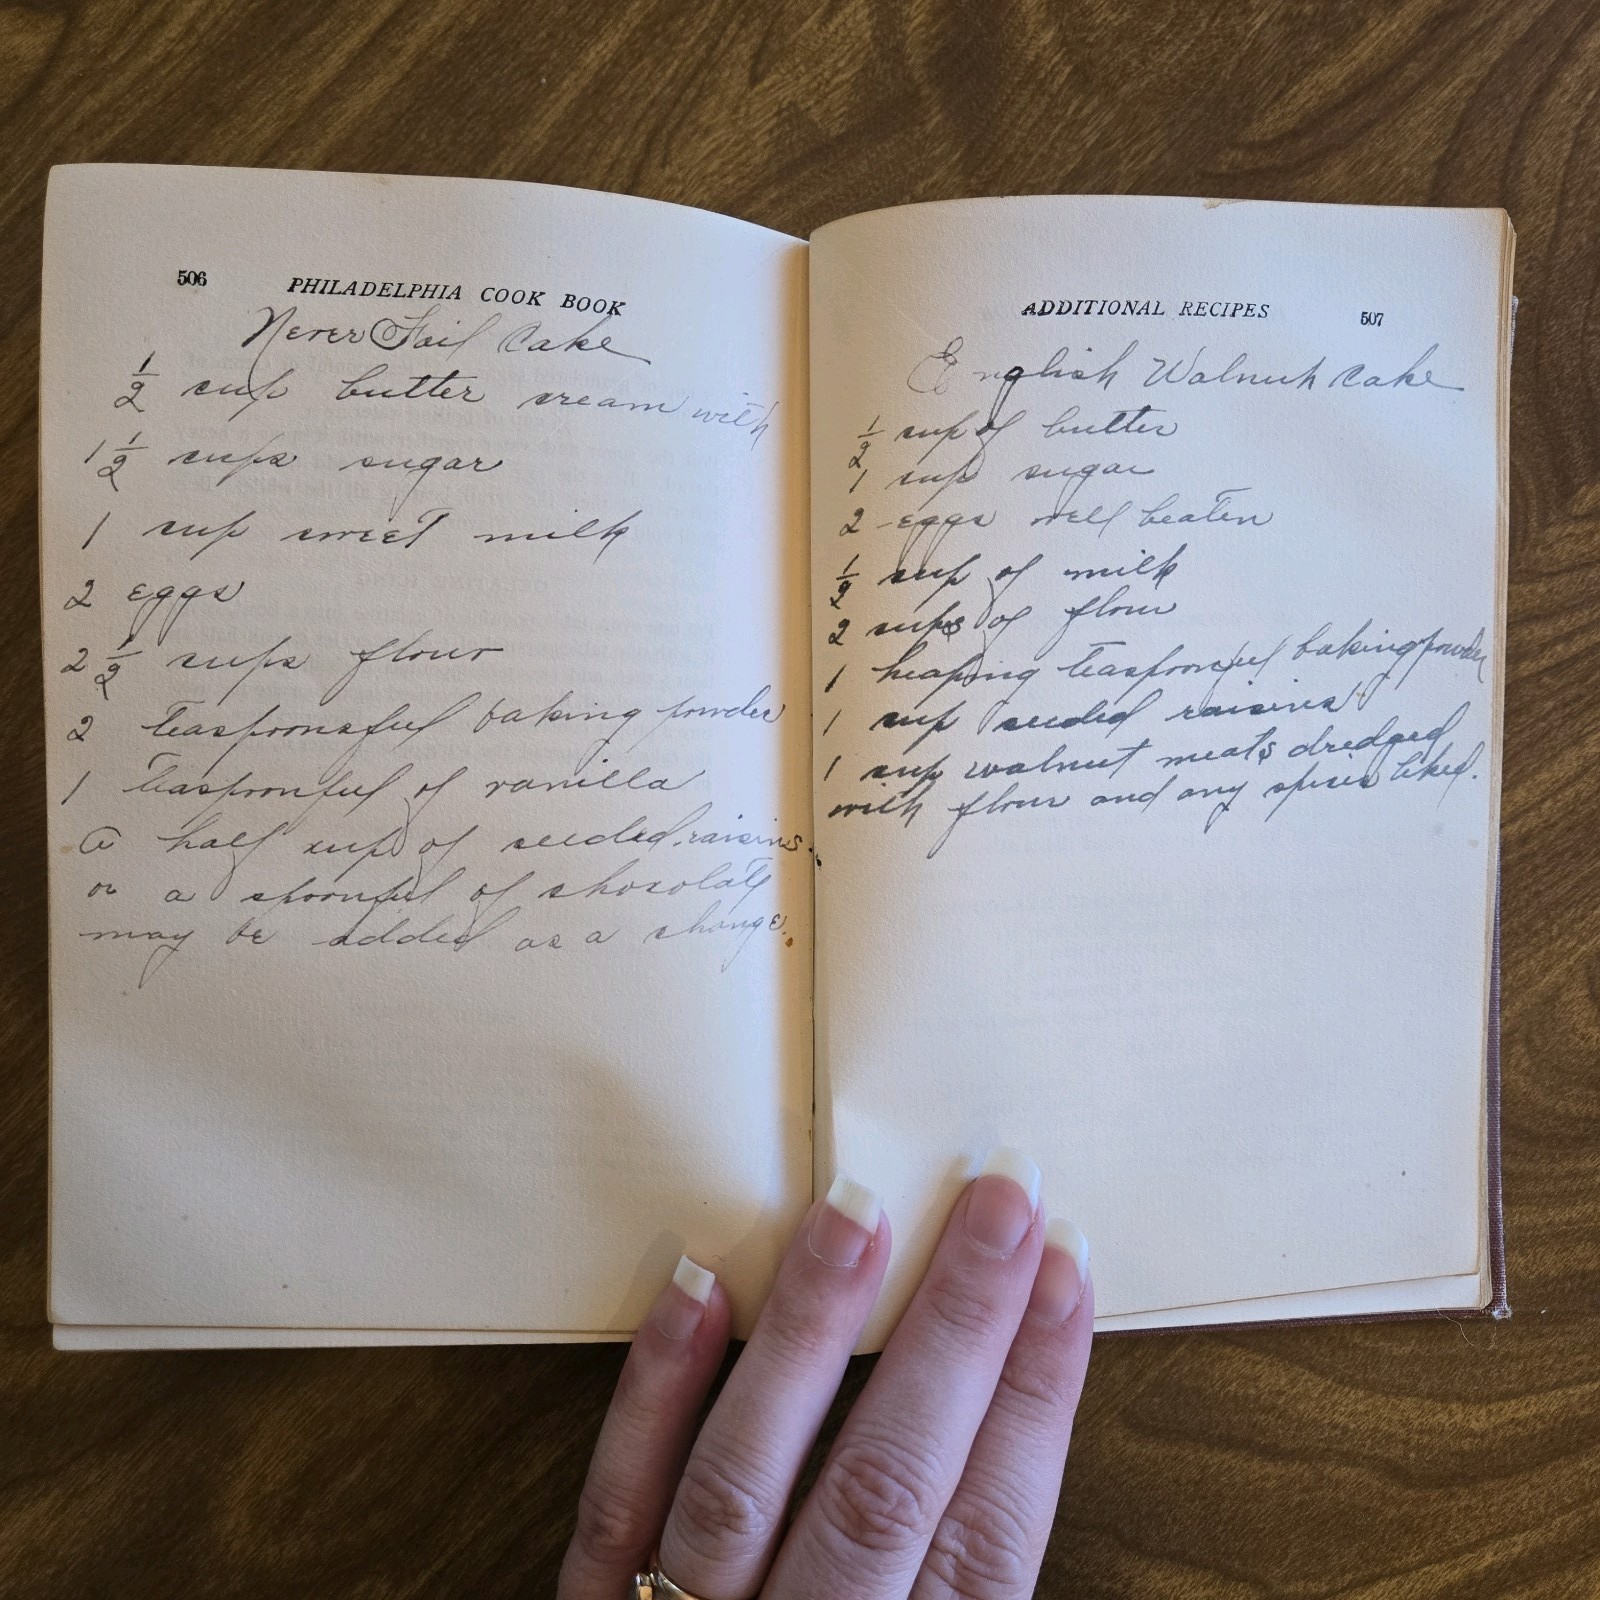 506 PHILADELPHIA COOK BOOK
Never Fail Cake
1/2 cup butter cream with
1 1/2 cups sugar
1 cup sweet milk
2 eggs
2 1/2 cups flour
2 teaspoonsful baking powder
1 teaspoonful of vanilla
A half cup of seeded raisins.
or a spoonful of chocolate
may be added as a change.
ADDITIONAL RECIPES 507
English Walnut Cake
1/2 cup of butter
1 cup sugar
2 eggs well beaten
1/2 cup of milk
2 cups of flour
1 heaping teaspoonful baking powder
1 cup seeded raisins
1 cup walnut meats dredged
with flour and any spices liked.